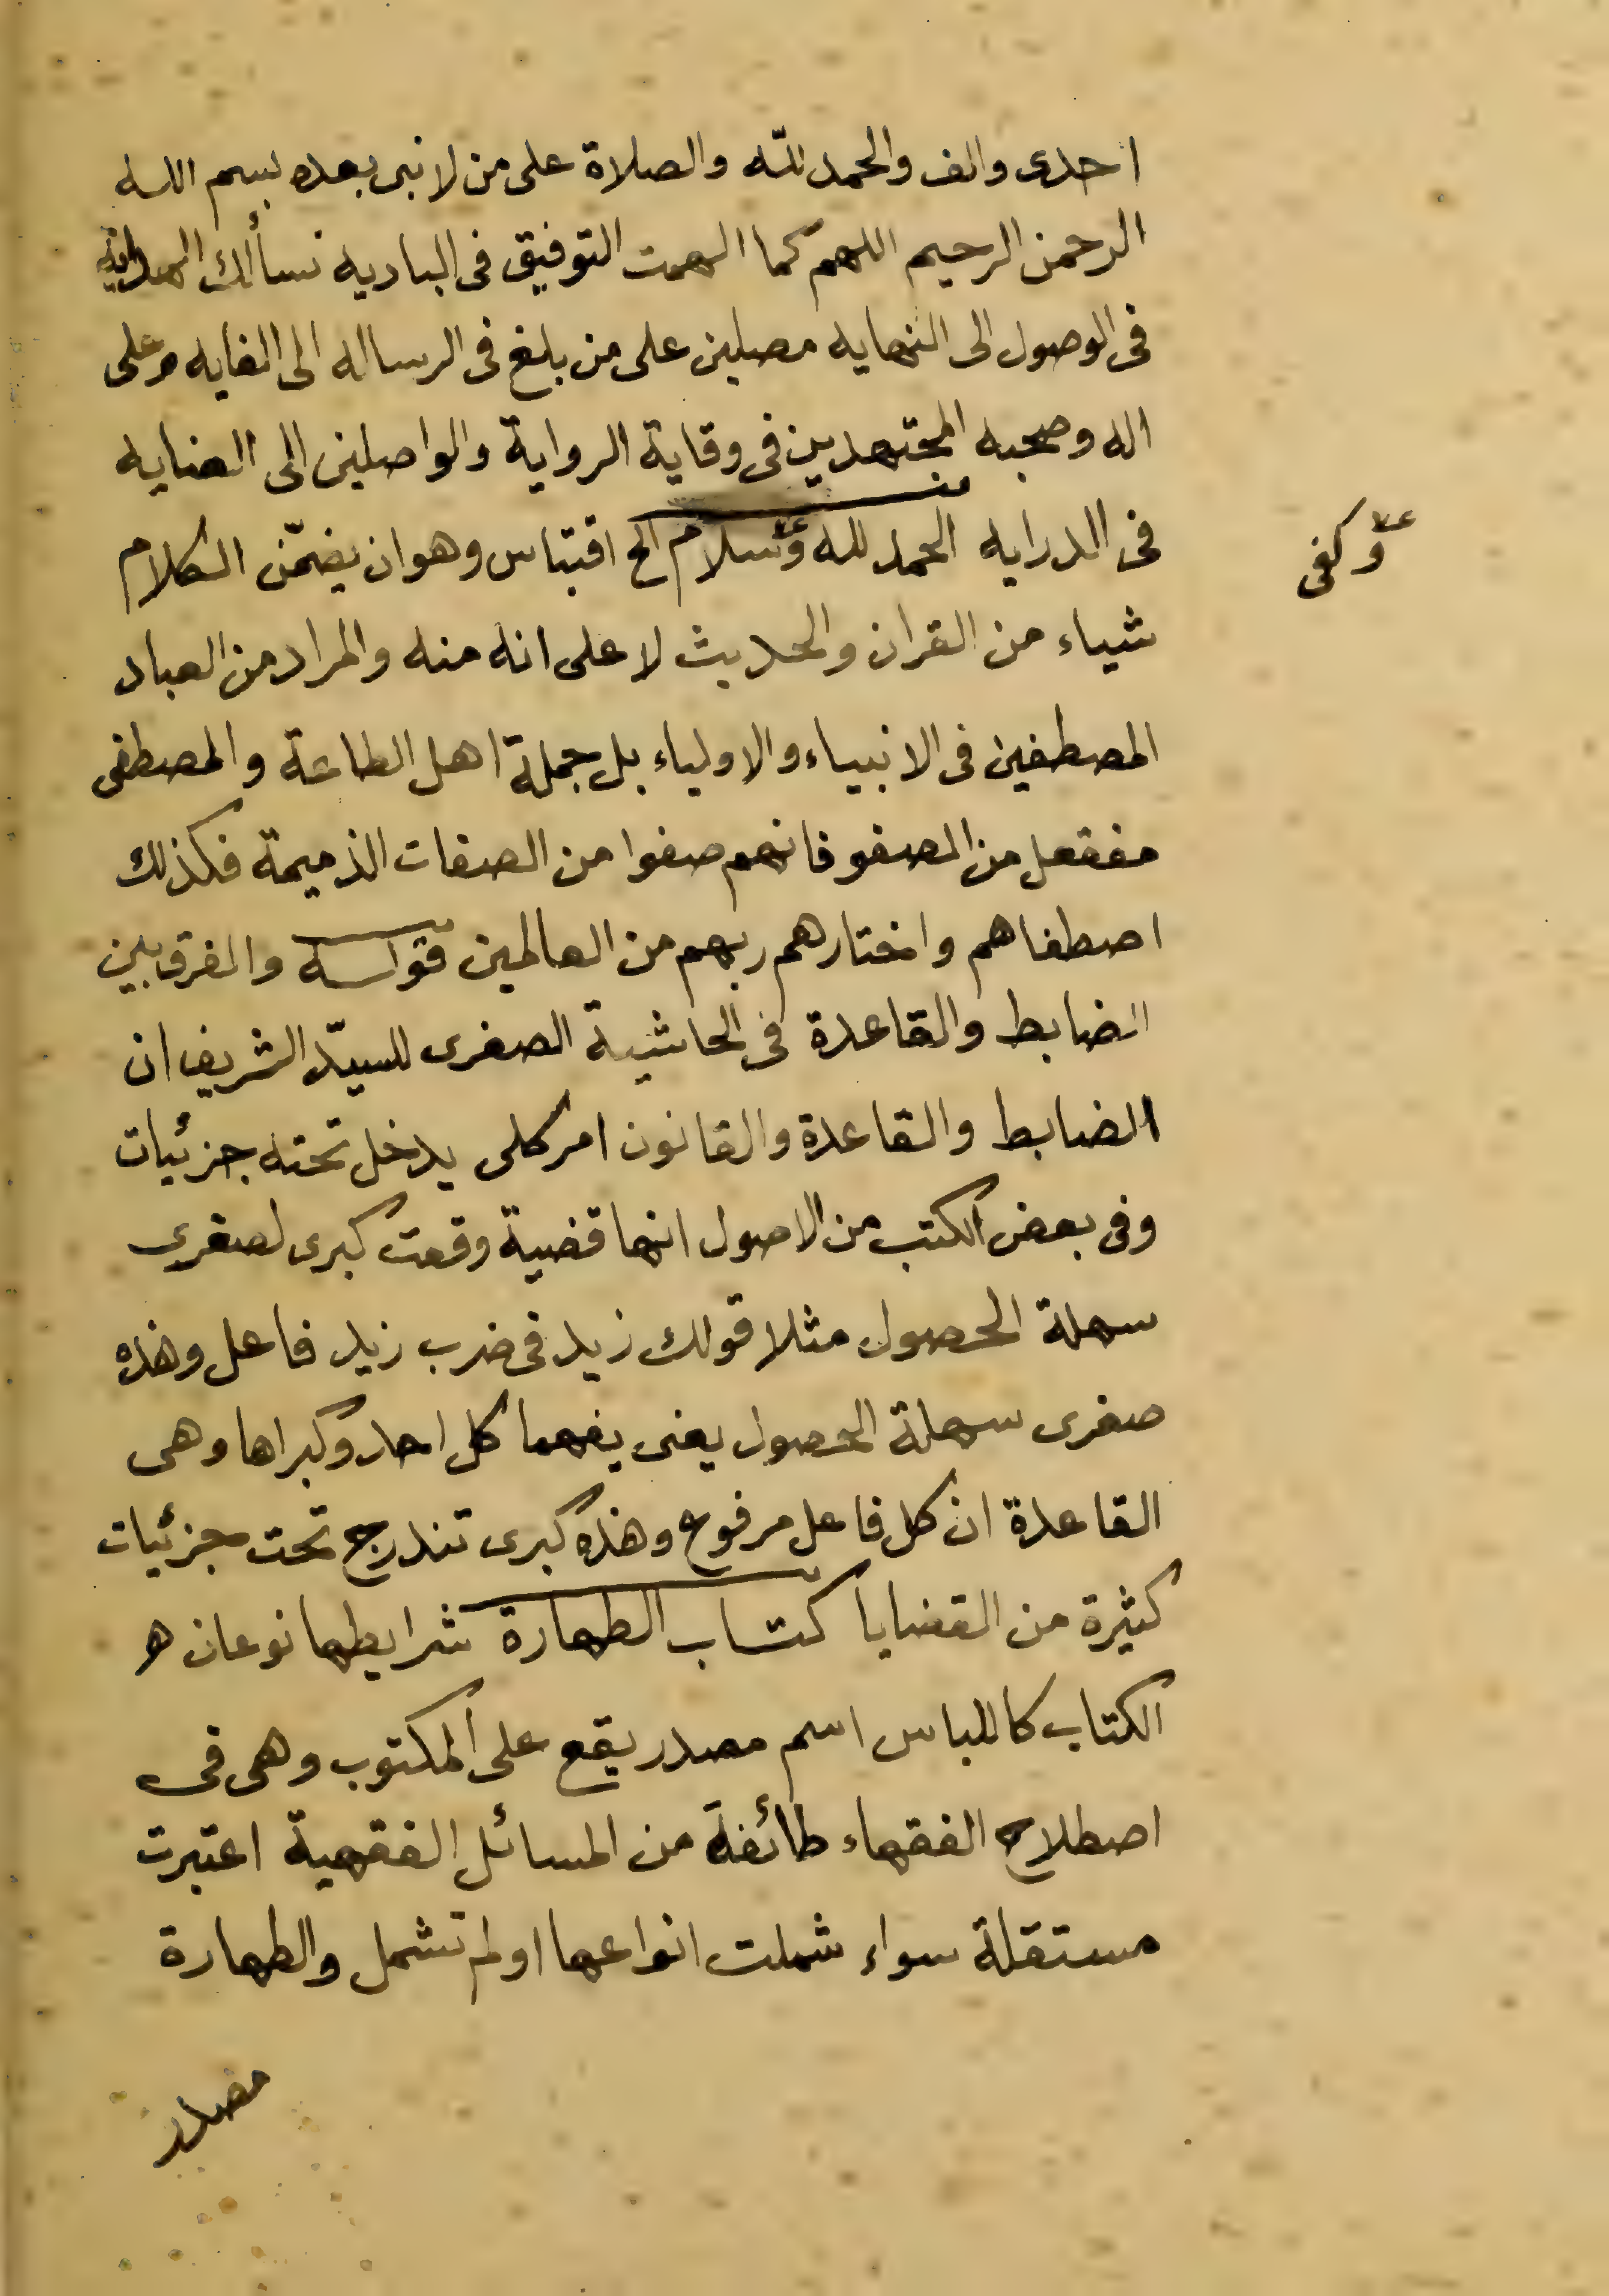 احدى والف والحمد لله والصلاة على من لا نبى بعده بسم الله
الرحمن الرحيم اللهم كما الهمت التوفيق فى البادیه نسألك الهداية
فى الوصول الى النهايه مصلين على من بلغ فى الرساله الى الغايه وعلى
اله وصحبه المجتهدين فى وقاية الرواية والواصلين الى العنايه
فى الدرايه الحمد لله وسلام الخ اقتباس وهو ان يضمّن الكلام
وكفى
شياء من القران والحديث لا على انه منه والمراد من العباد
المصطفين فى الانبياء والاولياء بل جملة اهل الطاعة والمصطفى
مفقعل من الصفو فانهم صفوا من الصفات الذميمة فكذلك
اصطفاهم واختارهم ربهم من العالمين قوله والفرق بين
الضابط والقاعدة فى الحاشية الصغرى للسيّد الشريف ان
الضابط والقاعدة والقانون امر كلى يدخل تحته جزئيات
وفى بعض الكتب من الاصول انها قضية وقعت كبرى لصغرى
سهلة الحصول مثلا قولك زيد فى ضرب زيد فاعل وهذه
صغرى سهلة الحصول يعنى يفهما كل احد وكبراها وهى
القاعدة ان كل فاعل مرفوع وهذه كبرى تندرج تحت جزئيات
كثيرة من القضايا كتاب الطهارة شرايطها نوعان ه
الكتاب كاللباس اسم مصدر يقع على المكتوب وهى فى
اصطلاح الفقهاء طائفة من المسائل الفقهية اعتبرت
مستقلة سواء شملت انواعها او لم تشمل والطهارة
مصدر